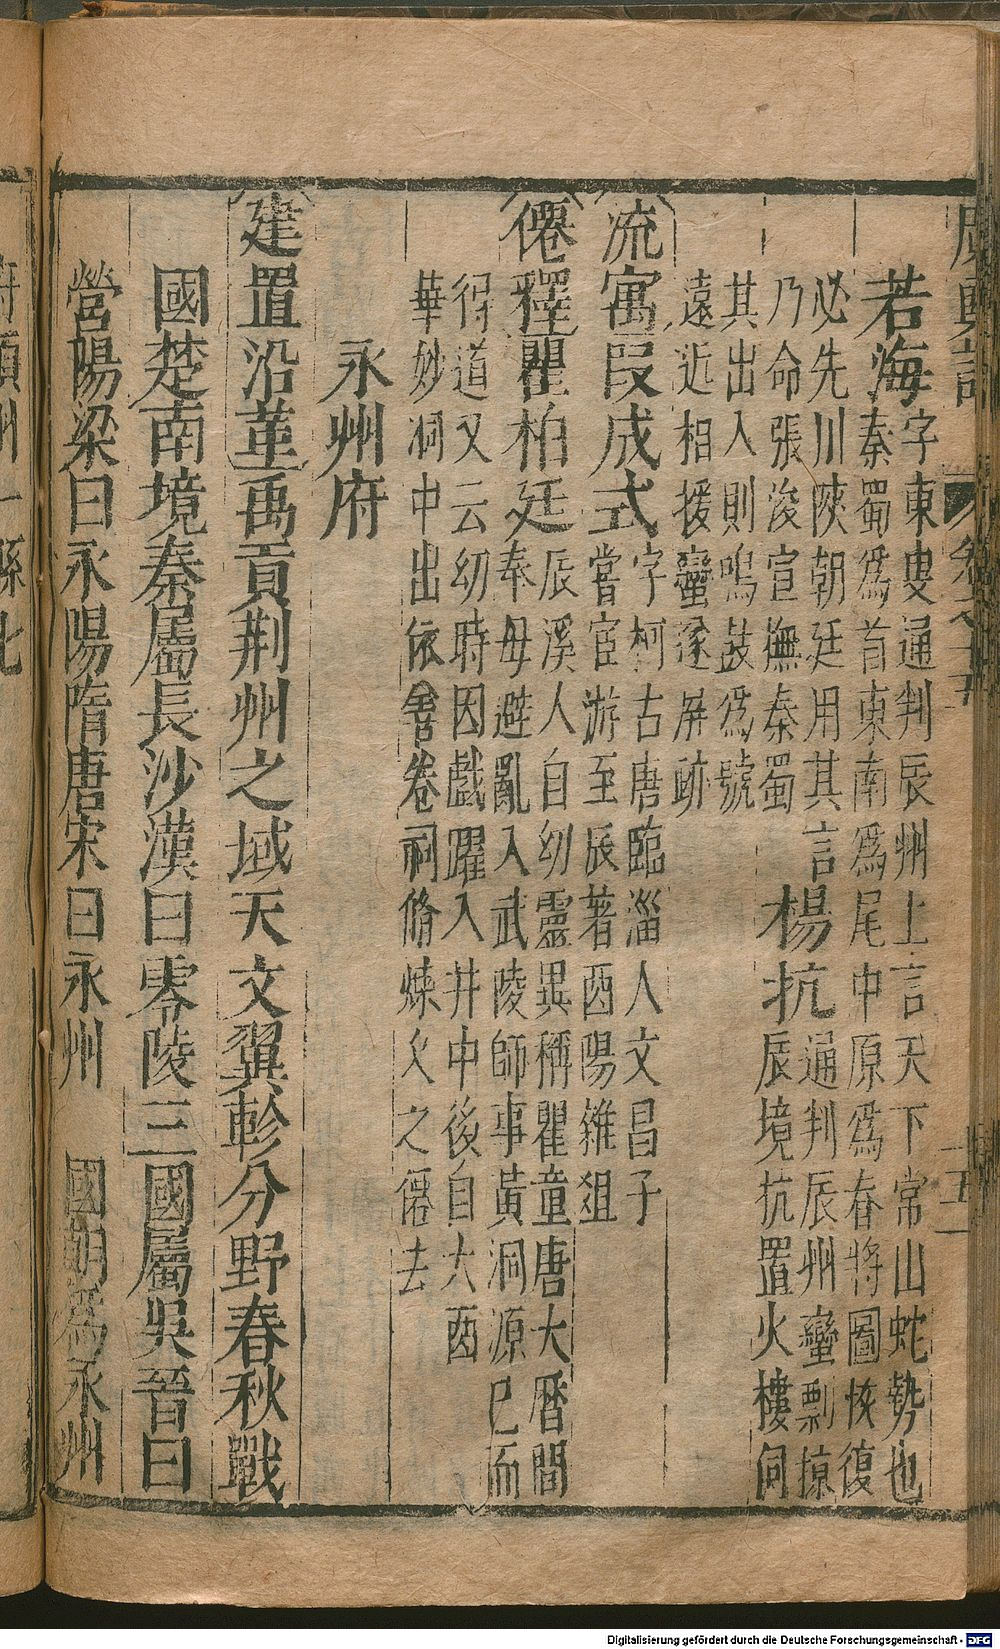 廣輿記 卷之十五
十五
若海字東叟通判辰州上言天下常山蛇勢也
秦蜀爲首東南爲尾中原爲春將圖恢復
必先川陝朝廷用其言
乃命張浚宣撫秦蜀
楊抗通判辰州蠻剽掠
辰境抗置火樓伺
其出入則鳴鼓爲號
遠近相援蠻遂屏跡
流寓段成式字柯古唐臨淄人文昌子
嘗宦游至辰著酉陽雜俎
僊釋瞿柏廷辰溪人自幼靈異稱瞿童唐大曆間
奉母避亂入武陵師事黃洞源已而
得道又云幼時因戲躍入井中後自大酉
華妙洞中出依善卷祠脩煉久之僊去
永州府
建置沿革禹貢荆州之域天文翼軫分野春秋戰
國楚南境秦屬長沙漢曰零陵三國屬吳晉曰
營陽梁曰永陽隋唐宋曰永州 國朝爲永州
府領州一縣七
Digitalisierung gefördert durch die Deutsche Forschungsgemeinschaft - DFG